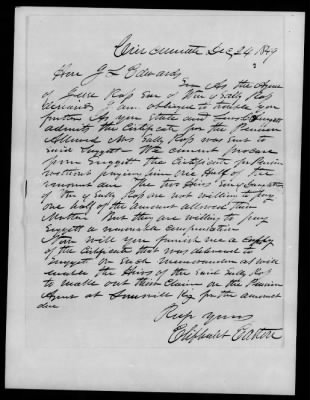 Cincinnati Dec 24 1849
Hon J L Edwards
Sir As the Agent
of Jesse Ross Exr of Wm & Sally Ross
deceased I am obliged to trouble you
further As you state and
admits the Certificate for the Pension
Allowed Mrs Sally Ross was sent to
said Suggett We cannot procure
from Suggett the Certificate for Pension
without paying him one Half of the
amount due The two Heirs
of Wm & Sally Ross are not willing to pay
one half of the amount allowed their
Mother But they are willing to pay
Suggett a reasonable compensation
Now will you furnish me a Copy
of the Certificate that was delivered to
Suggett or such Memorandum as will
enable the Heirs of the said Sally Ross
to make out their Claim on the Pension
Agent at Ky for the amount
due
Resp Yours
Eliphalet Eaton